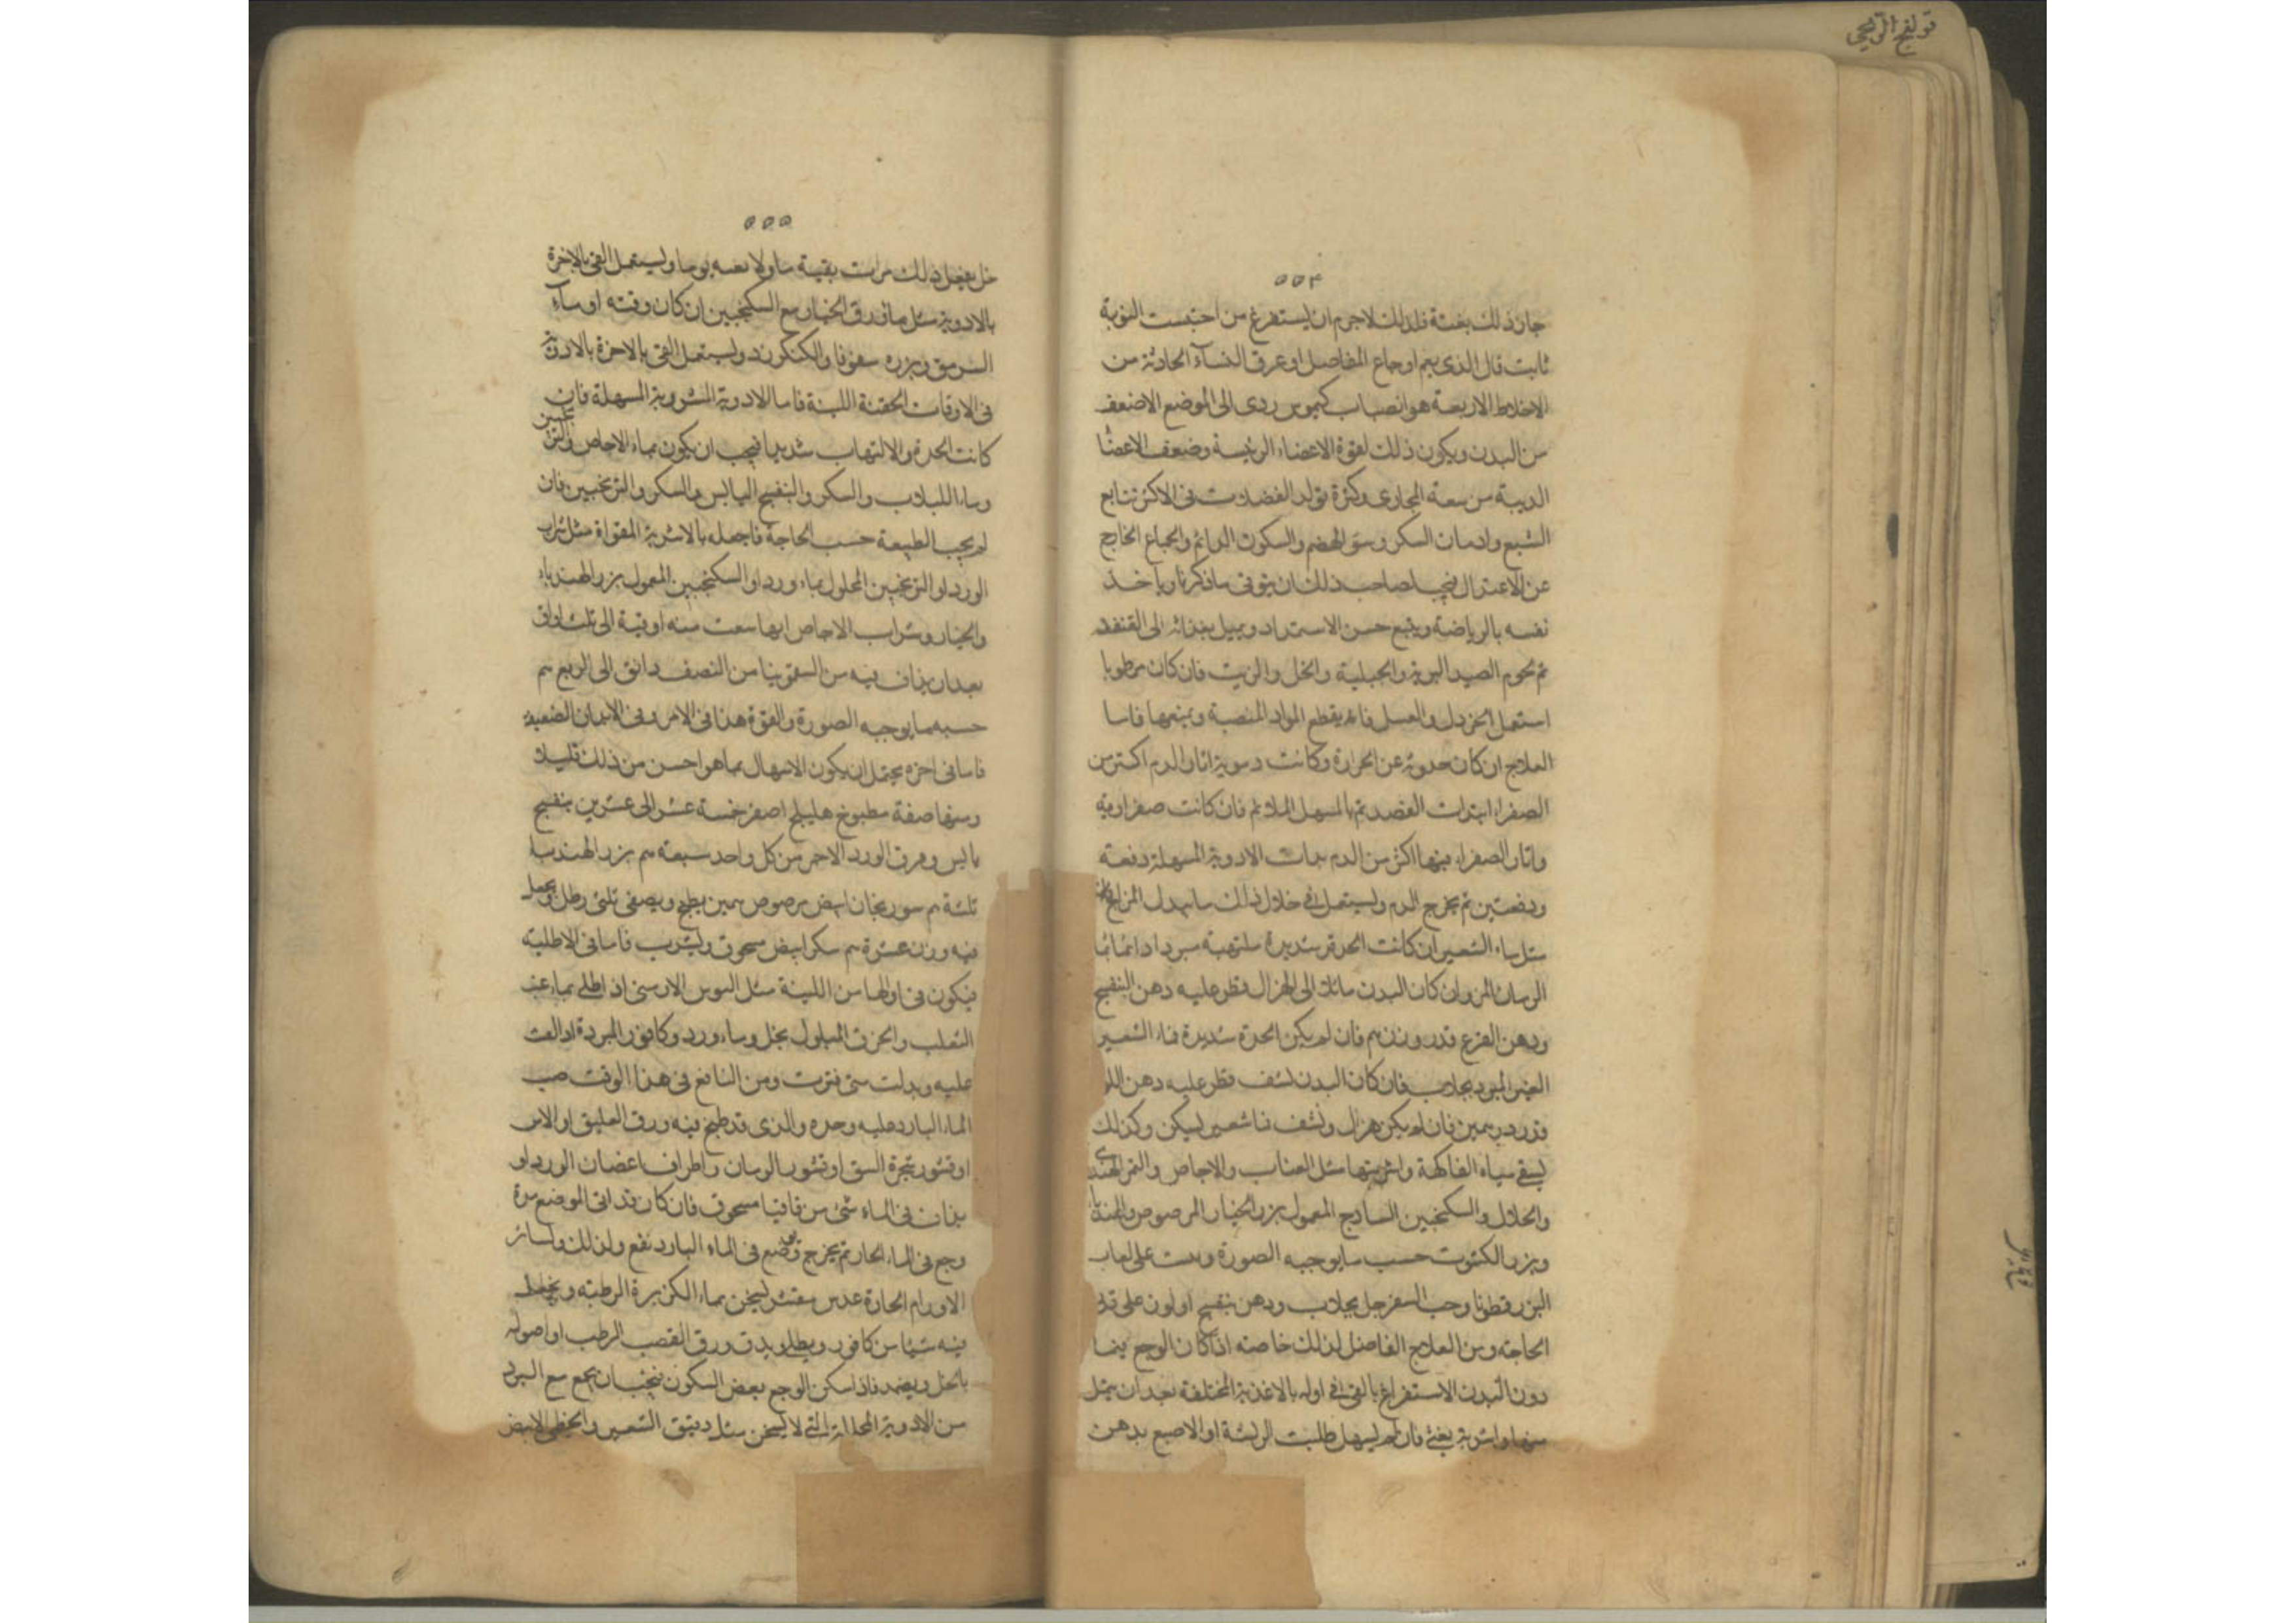 قولنج الريحي
٥٥٤
جاز ذلك بغتة فلذلك لاجرم ان يستفرغ من احتبست النوبة
ثابت قال الذى يعم اوجاع المفاصل او عرق النسآء الحادثة من
الاخلاط الاربعة هو انصباب كيموس ردى الى الموضع الاضعف
من البدن ويكون ذلك لقوة الاعضاء الرئيسة وضعف الاعضا
الدبية من سعة المجارى وكثرة تولد الفضلات فى الاكثر تتابع
الشبع وادمان السكر وسوء الهضم والسكون الدائم والجماع الخارج
عن الاعتدال فيجب لصاحب ذلك ان يتوقى ما ذكرنا وياخذ
نفسه بالرياضة ويتبع حسن الاستمراد ويميل بغذائه الى القنفذ
ثم لحوم الصيد البرية والجبلية والخل والزيت فان كان مرطوبا
استعمل الخردل والعسل فانه يقطع المواد المنصبة ويمنعها فاما
العلاج ان كان حدوثه عن الحرارة وكانت دموية اثار الدم اكثر من
الصفرا ابتدات الفصد ثم بالمسهل الملائم فان كانت صفراوية
واثار الصفراء فيها اكثر من الدم بدات الادوية المسهلة دفعة
ودفعتين ثم يخرج الدم ويستعمل فى خلال ذلك ما يبدل المزاج
مثل ماء الشعير ان كانت الحدة شديدة ملتهبة مبردا دائما بما
الرمان المز وان كان البدن مائلا الى الهزال فقطر عليه دهن البنفسج
ودهن القرع قدر وزن م فان لم يكن الحدة شديدة فماء الشعير
الغير المبرد بجلاب فان كان البدن نشف قطر عليه دهن اللو
قدر درهمين فان لم يكن هزال ونشف فما شعير ليكن وكذلك
يسقى مياه الفاكهة واشربتها مثل العناب والاجاص والتمر الهندى
والجلال والسكنجبين الساذج المعمول بزر الخيار المرصوص والهندبا
وبزر الكثوث حسب ما يوجبه الصورة وبست على لعاب
البزر قطونا وحب السفرجل بجلاب ودهن بنفسج او لوز على قدر
الحاجة ومن العلاج الفاضل لذلك خاصة اذا كان الوجع فيما
دون البدن الاستفراغ بالقى فى اوله بالاغذية المختلفة بعد ان يمتلى
منها واشربة يغثى فان لم يسهل طلبت الريشة او الاصبع بدهن
٥٥٥
خل يفعل ذلك مرات بقية ما ولا يوما ويستعمل القى بالاخرة
بالادوية مثل ماء ورق الخيار مع السكنجبين ان كان وقته او ماء
السرمق وبزره سفوفا والكنكرزد ويستعمل القى بالاخرة بالادوية
فى الاوقات الحقنة اللينة فاما الادوية المشروبة المسهلة فان
كانت الحدة والالتهاب شديدا فيجب ان يكون بماء الاجاص والترنجبين
وماء اللبلاب والسكر والبنفسج اليابس والسكر والترنجبين فان
لم يجب الطبيعة حسب الحاجة فاجعله بالاشربة المقواة مثل شراب
الورد او الترنجبين المحلول بماء ورد او السكنجبين المعمول بزر الهندباء
والخيار وشراب الاجاص ايها سقت منه اوقية الى ثلث اواق
بعد ان يذاف فيه من السقمونيا من النصف دانق الى الربع م
حسب ما يوجبه الصورة والقوة هذا فى الامر وفى الابدان الضعيفة
فاما فى اخره يحتمل ان يكون الاسهال بما هو احسن من ذلك قليلا
ومنها صفة مطبوخ هليلج اصفر خمسة عشر الى عشرين بنفسج
يابس وورق الورد الاحمر من كل واحد سبعة م بزر الهندبا
ثلثة م سورنجان ابيض مرصوص همين يطبخ ويصفى ثلثى رطل ويجعل
فيه وزن عشرة م سكر ابيض مسحوق ويشرب فاما فى الاطلية
فيكون فى اولها من اللينة مثل البوس الارمنى اذ اطلى بماء عنب
الثعلب والخرق المبلول بخل وماء ورد وكافور المبردة اد القت
عليه وبدلت متى فترت ومن النافع فى هذا الوقت صب
الماء البارد عليه وحده والذى قد طبخ فيه ورق العليق او الاس
او قشور شجرة السق او قشور الرمان واطراف اغصان الورد او
يذاف فى الماء شى من قاقيا مسحوق فان كان قد اتى الموضع مرة
وجع فى الماء الحار ثم يخرج وتضع فى الماء البارد نفع ولذلك ولسائر
الاورام الحارة عدس مقشر ليخن بماء الكزبرة الرطبة ويخلط
فيه شيئا من كافور ويطلى ويدق ورق القصب الرطب او اصوله
بالخل ويضمد فاذا سكن الوجع بعض السكون فيجب ان يجمع مع البرد
من الادوية المحللة التى لا يسخن مثل دقيق الشعير والخطمى الابيض